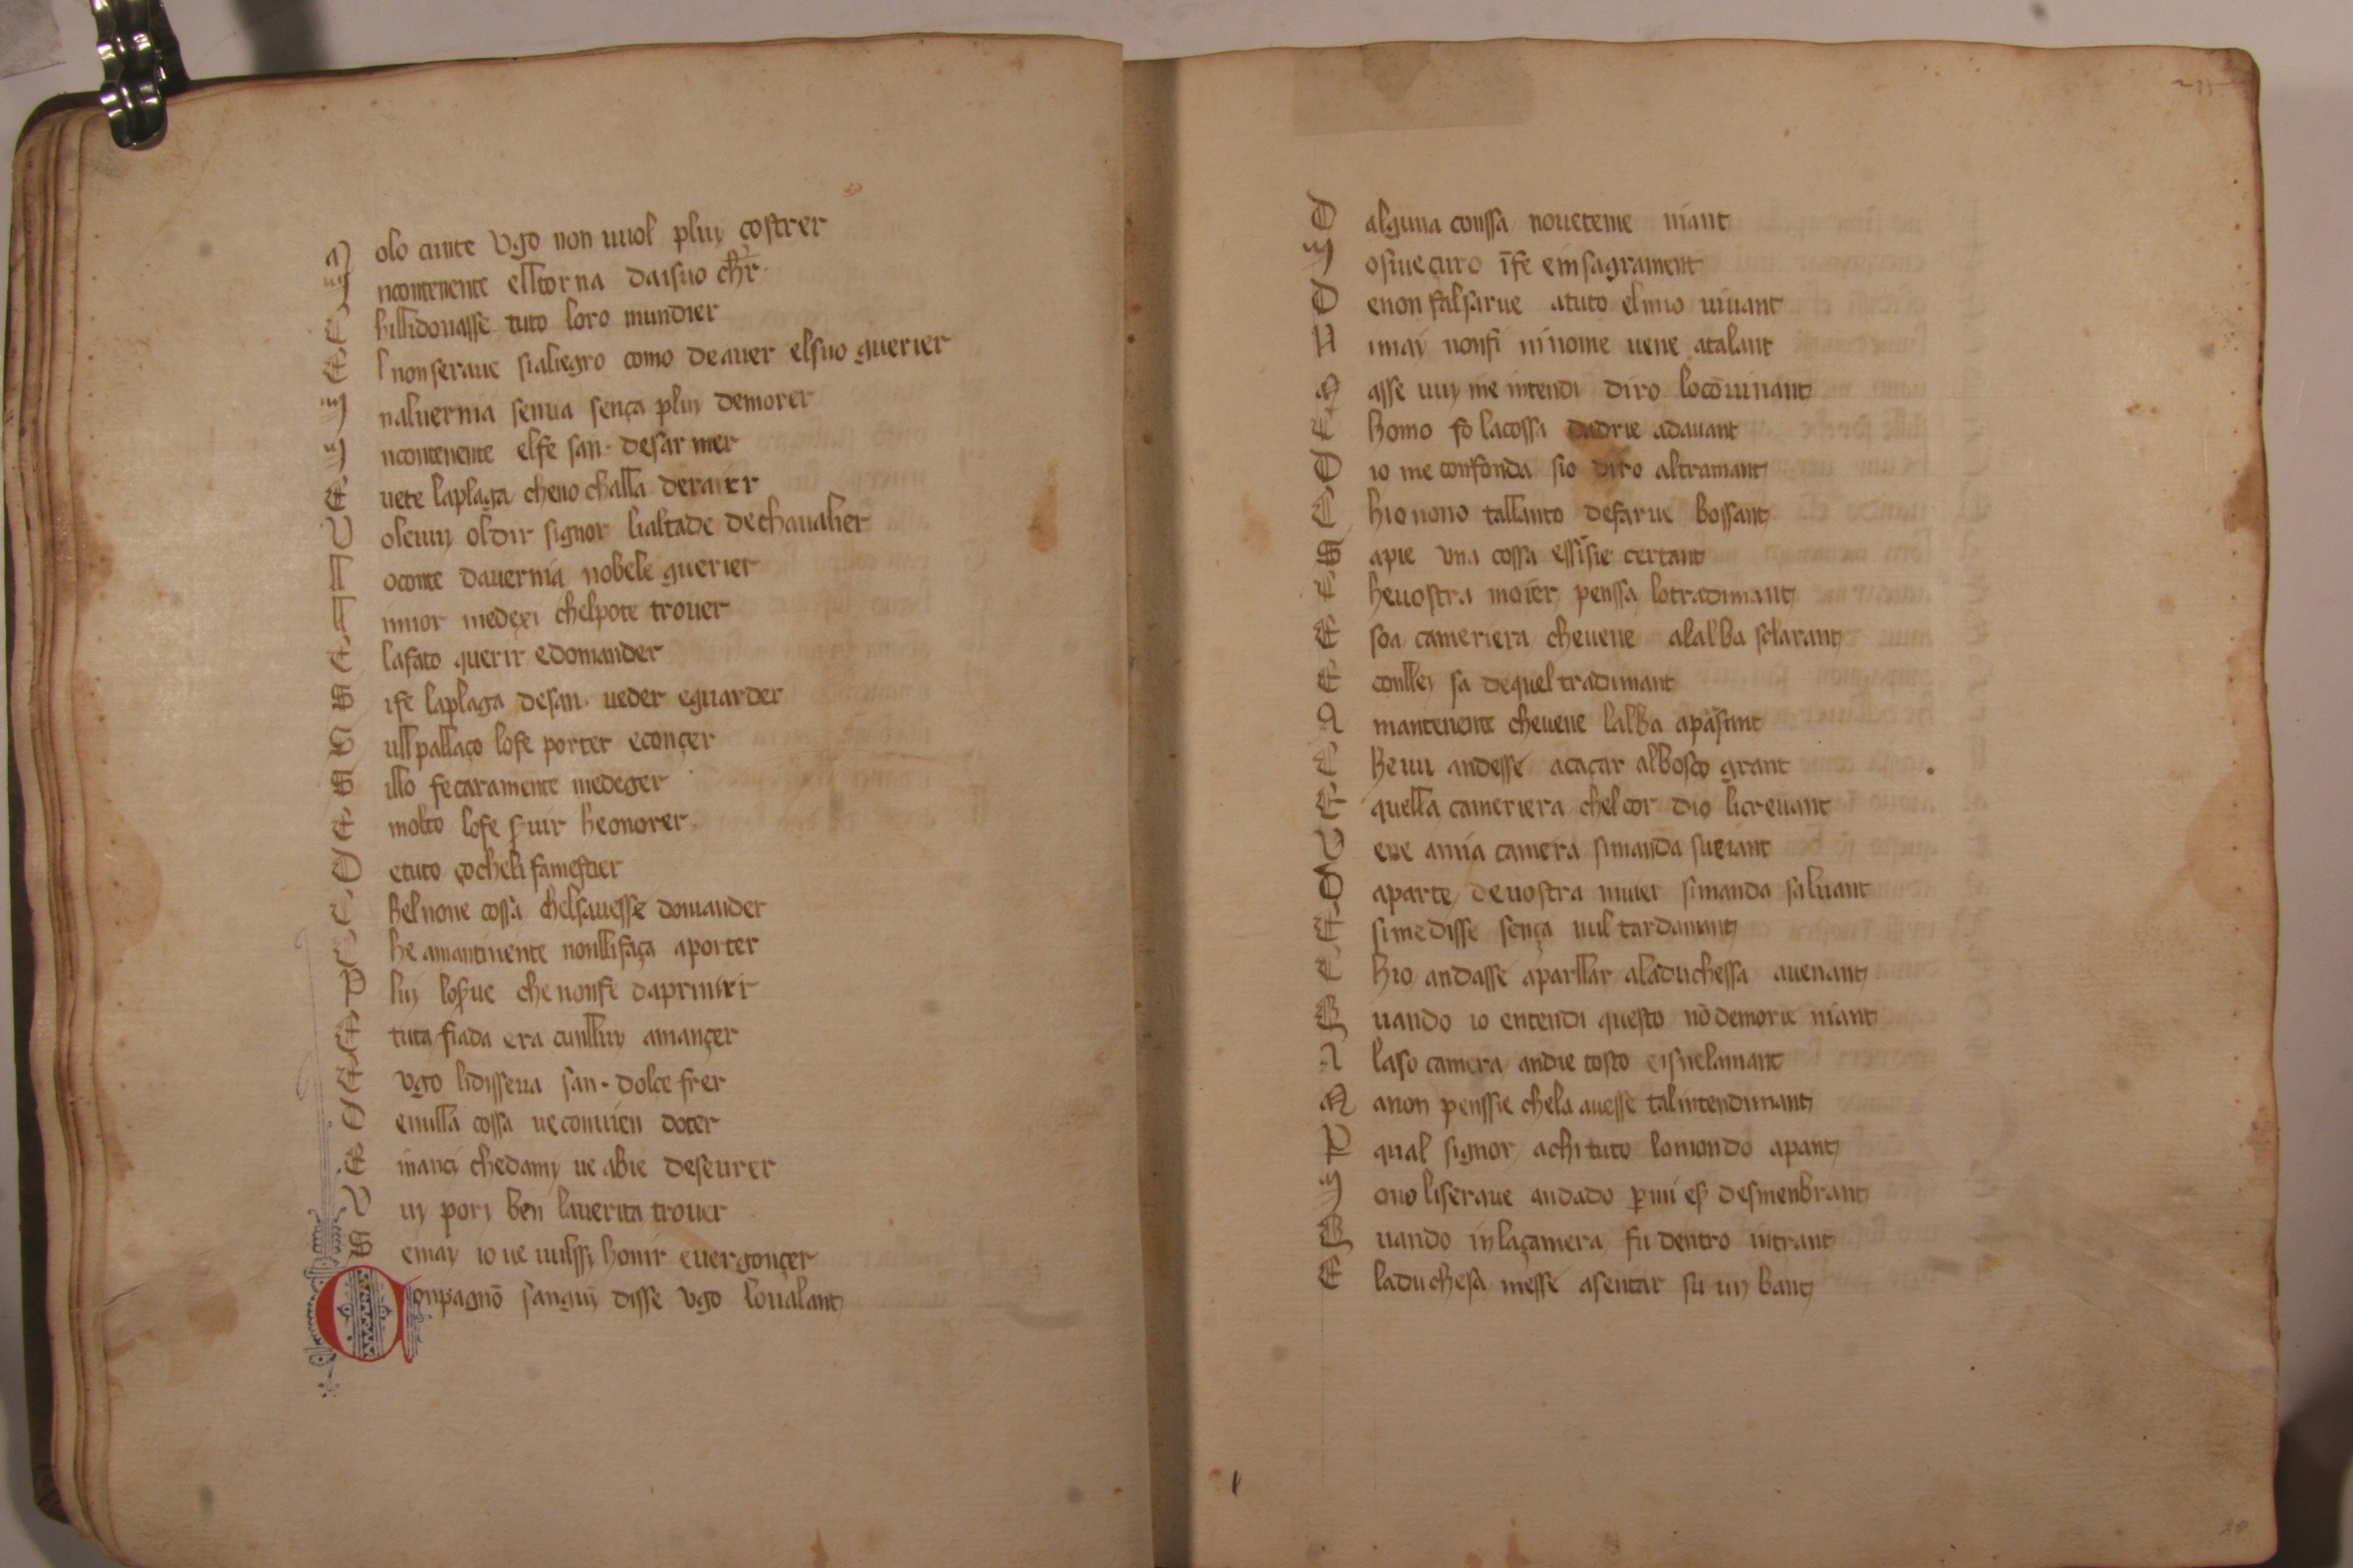 N olo cunte vgo non uuol pluy costrer
I ncontenente elltorna daisuo chr̅
C hillidonasse tuto loro mundier
E l nonseraue sialiegro como deauer elsuo guerier
I naluernia senua sença pluy demorer
I ncontenente elfe san· desarmer
E uete laplaga cheuo challa deraier
V oleuuy oldir signor lialtade dechaualier
L oconte dauernia nobele guerier
L imior medexi chelpote trouer
E lafato querir edomander
S ife laplaga desan· ueder eguarder
S ullpallaço lofe porter econçer
S illo fecaramente medeger
E molto lofe seruir heonorer
D etuto çocheli famestier
C helnone cossa chelsauesse domander
C he amantinente nonllifaça aporter
P luy loserue chenonfe daprimier
E tuta fiada era cunlluy amançer
E vgo lidisseua san· dolce frer
D enulla cossa ueconuien doter
E inançi chedamy ue abie deseurer
V uy pory ben lauerita trouer
S emay io ue uulssy honir euergonçer
C onpagnõ sanguỹ disse vgo loualant
D alguna conssa noueteme niant
I osiueçuro ĩfe einsagrament
D enonfalsarue atuto elmio uiuant
N imay nonfi ninome uene atalant
M asse uuy me intendi diro locõuinant
C homo fo lacossa dadrie adauant
D io me confonda sio diro altramant
C hionono tallanto defarue bossant
S apie vna cossa essisie certant
C heuostra moier penssa lotradimant
E soa cameriera cheuene alalba sclarant
E conlley sa dequel tradimant
A mantenente cheuene lalba aparisant
C heuu andesse acaçar albosco grant
E quella cameriera chelcor dio licreuant
V ene amia camera simanda sueiant
D aparte deuostra muier simanda saluant
E simedisse sença nul tardamant
C hio andasse aparllar aladuchessa auenant
Q uando io entendi questo nõ demorie niant
A laso camera andie tosto eisnelamant
M anon penssie chela auesse talintendimant
P qual signor achituto lomondo apant
I ono liseraue andado p̱ mi es̱ desmenbrant
Q uando inlaçamera fu dentro intrant
E laduchesa messe asentar su un bant